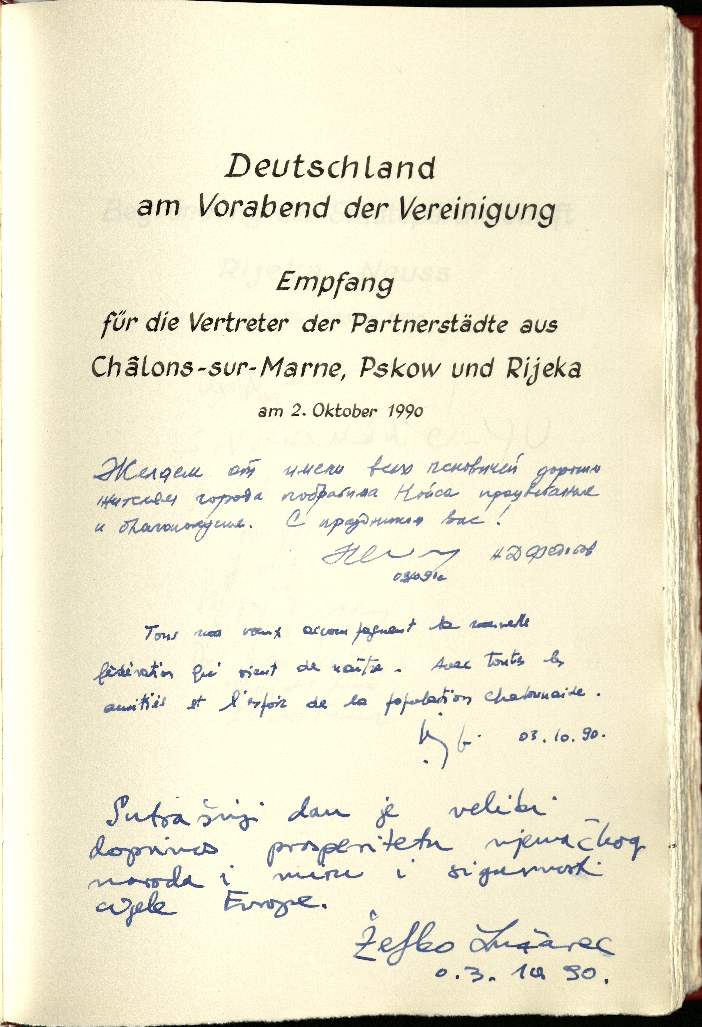 Deutschland
am Vorabend der Vereinigung
Empfang
für die Vertreter der Partnerstädte aus
Châlons-sur-Marne, Pskow und Rijeka
am 2. Oktober 1990
Желаем от имени всех псковичей дорогим
жителям города побратима Нойса процветания
и благополучия. С праздником вас!
03.10.90
Tous nos vœux accompagnent la nouvelle
fédération qui vient de naître. Avec toutes les
amitiés et l'espoir de la population chalonnaise.
03.10.90.
Sutrašnji dan je veliki
doprinos prosperitetu njemačkog
naroda i miru i sigurnosti
cijele Europe.
Željko Lužavec
0.3. 10. 90.